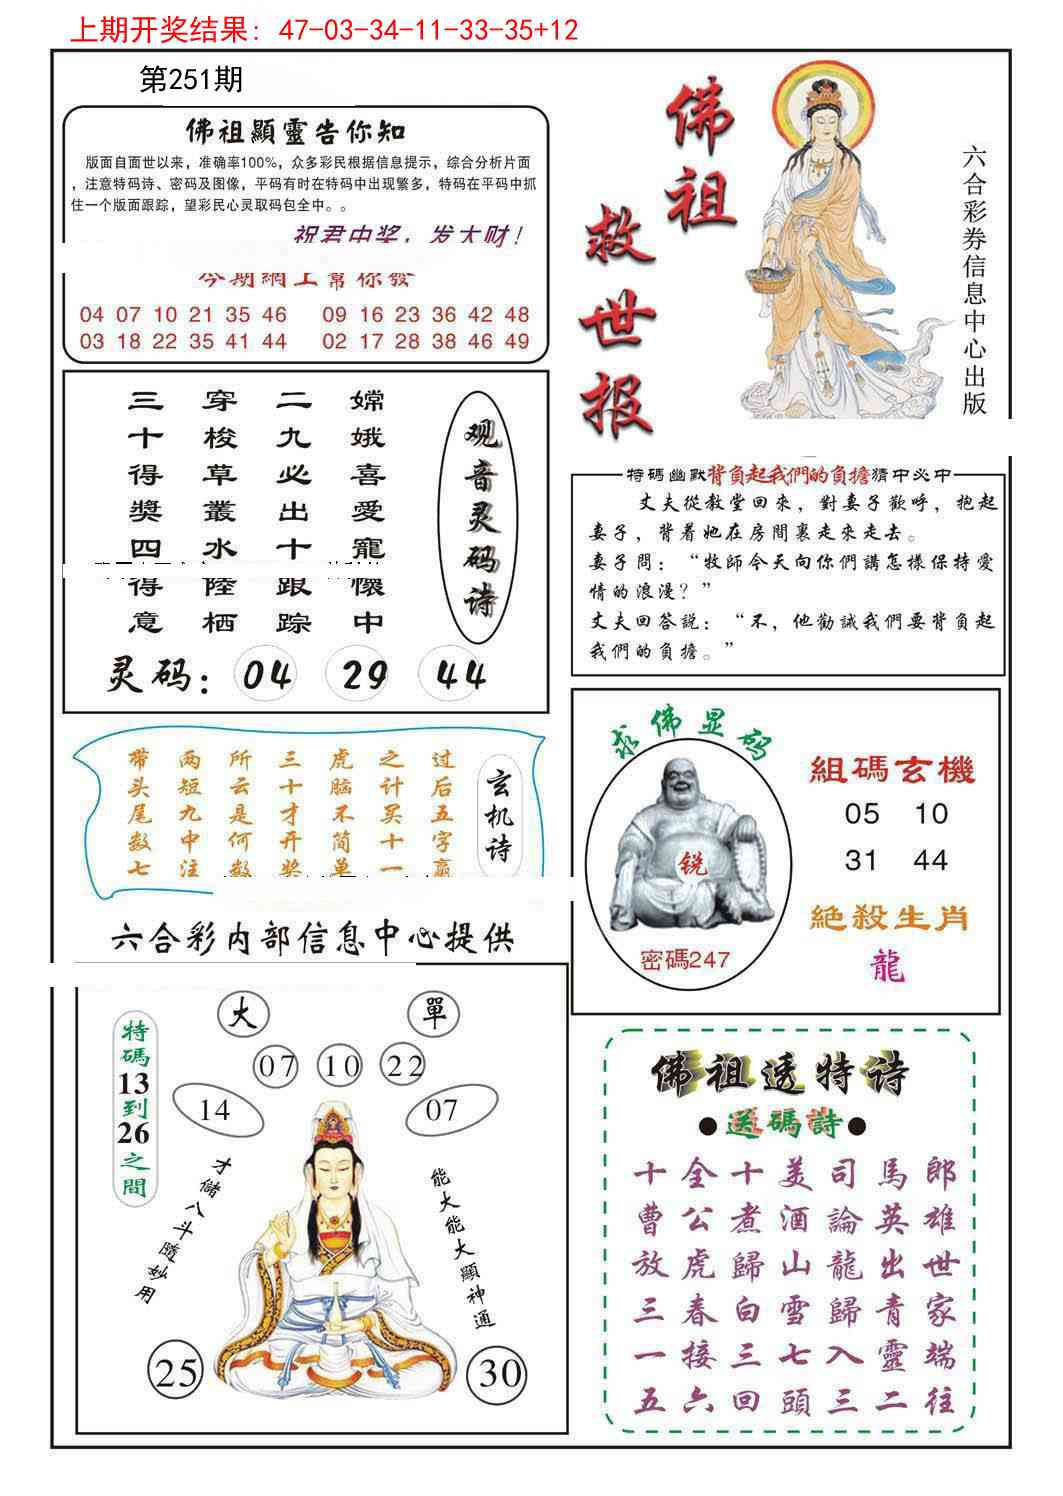 上期开奖结果: 47-03-34-11-33-35+12
第251期
佛祖顯靈告你知
版面自面世以来，准确率100%，众多彩民根据信息提示，综合分析片面
，注意特码诗、密码及图像，平码有时在特码中出现繁多，特码在平码中抓
住一个版面跟踪，望彩民心灵取码包全中。。
祝君中奖，发大财！
今期網上幫你發
04 07 10 21 35 46 09 16 23 36 42 48
03 18 22 35 41 44 02 17 28 38 46 49
佛祖
救世报
六合彩券信息中心出版
观音灵码诗
嫦娥喜愛寵懷中
二九必出十跟踪
穿梭草叢水陸栖
三十得獎四得意
灵码：04 29 44
特碼幽默背負起我們的負擔猜中必中
丈夫從教堂回來，對妻子歡呼，抱起
妻子，背着她在房間裏走來走去。
妻子問：“牧師今天向你們講怎樣保持愛
情的浪漫？”
丈夫回答説：“不，他勸誡我們要背負起
我們的負擔。”
玄机诗
过后五字赢
之计买十一
虎脑不简单
三十才开奖
所云是何数
两短九中注
带头尾数七
六合彩内部信息中心提供
求佛显码
锐
密碼247
組碼玄機
05 10
31 44
絕殺生肖
龍
大 單
07 10 22
14 07
特碼13到26之間
才儲八斗隨妙用
能大能大顯神通
25 30
佛祖透特诗
●送碼詩●
十全十美司馬郎
曹公煮酒論英雄
放虎歸山龍出世
三春白雪歸青家
一接三七入靈端
五六回頭三二往